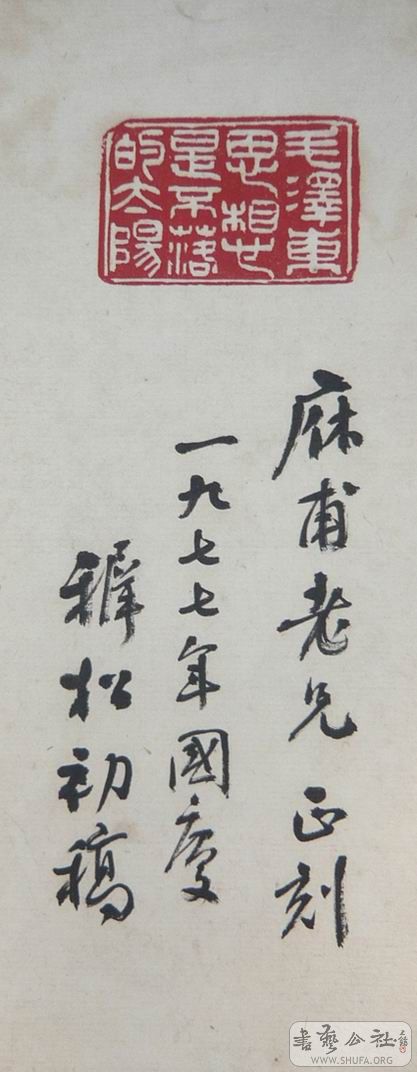 毛澤東
思想
是不落
的太陽
庥甫老兄正刻
一九七七年國慶
稺松初稿
書藝公社
WWW.SHUFA.ORG